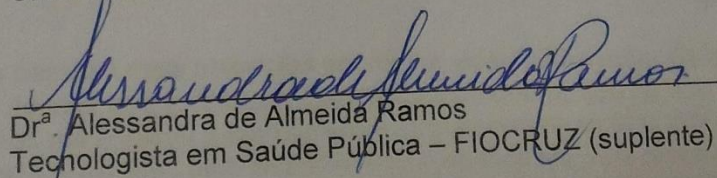 Alessandra de Almeida Ramos
Drª. Alessandra de Almeida Ramos
Tecnologista em Saúde Pública – FIOCRUZ (suplente)